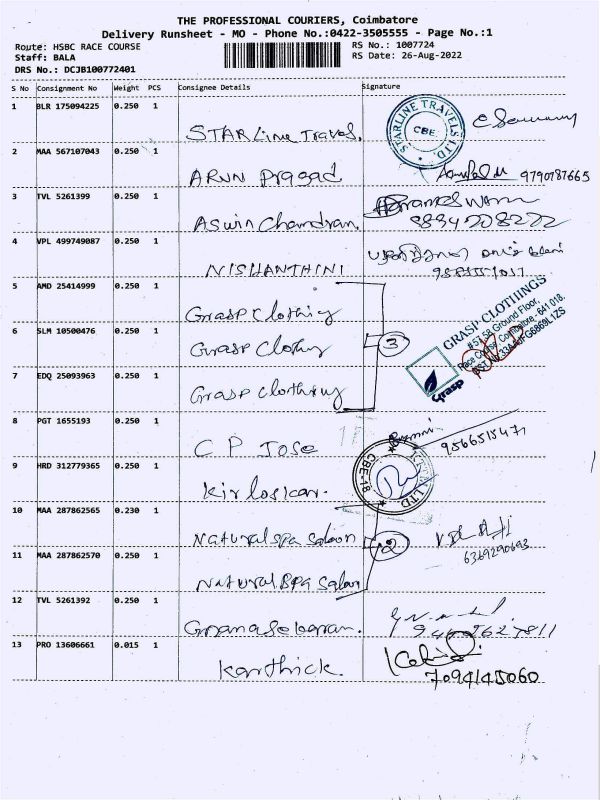 THE PROFESSIONAL COURIERS, Coimbatore
Delivery Runsheet - MO - Phone No.:0422-3505555 - Page No.:1
Route: HSBC RACE COURSE RS No.: 1007724
Staff: BALA RS Date: 26-Aug-2022
DRS No.: DCJB100772401
S No Consignment No Weight PCS Consignee Details Signature
1 BLR 175094225 0.250 1
STARLine Travel. STARLINE TRAVELS LTD. CBE.
2 MAA 567107043 0.250 1
ARUN Prasad 9790787665
3 TVL 5261399 0.250 1
Aswin Chandran.
4 VPL 499749087 0.250 1
NISHANTHINI
5 AMD 25414999 0.250 1
Grasp Clothing
6 SLM 10500476 0.250 1
Grasp Clothing 3
GRASP CLOTHINGS
# 57, 58 Ground Floor,
Race Course, Coimbatore - 641 018.
Grasp
7 EDQ 25093963 0.250 1
Grasp Clothing
8 PGT 1655193 0.250 1
C P Jose 9566515471
9 HRD 312779365 0.250 1
Kirloskar. CBE-18 LTD
10 MAA 287862565 0.230 1
Natural spa Saloon 2
6369290693
11 MAA 287862570 0.250 1
Natural Spa Saloon
12 TVL 5261392 0.250 1
Gnanasekaran.
13 PRO 13606661 0.015 1
Karthick. 7094145060